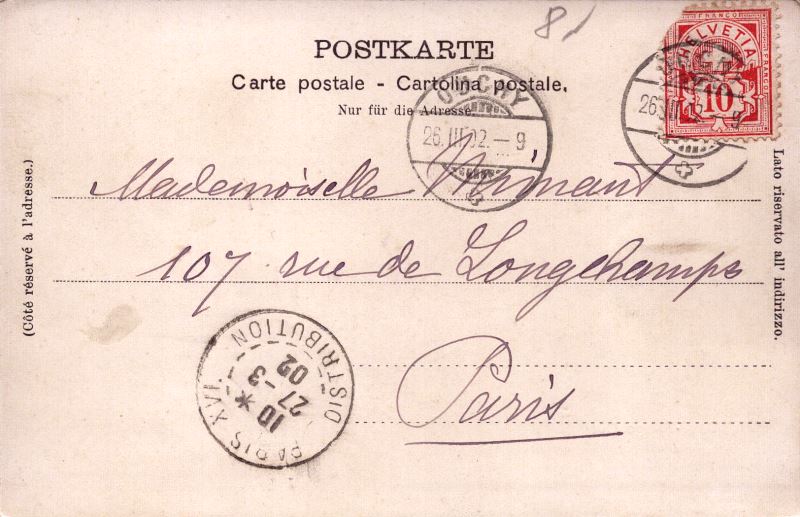 81
POSTKARTE
Carte postale - Cartolina postale.
Nur für die Adresse.
FRANCO
HELVETIA
FRANCO
10
OUCHY
26.III.02.-9
26.III.02.-9
(Côté réservé à l'adresse.)
Lato riservato all' indirizzo.
Mademoiselle Mimaut
107 rue de Longchamps
Paris
PARIS XVI
DISTRIBUTION
10 *
27-3
02